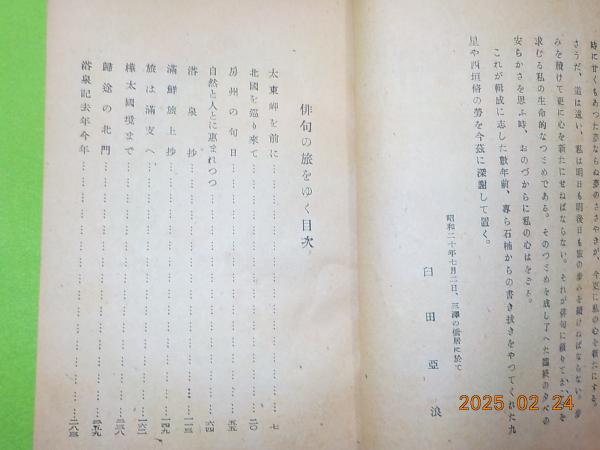 時に甘くもあつた夢ならぬ夢のささやきが、今更に私の心を新たにする。
さうだ、道は遠い。私は明日も明後日も旅の歩みを続けねばならない。歩
みを続けて更に心を新たにせねばならない。それが俳句に
求むる私の生命的なつとめである。そのつとめを成し了へた臨終の
安らかさを思ふ時、おのづからに私の心はをどる。
これが輯成に志した数年前、専ら石楠からの書き抜きをやつてくれた九
星や四垣脩の労を今茲に深謝して置く。
昭和二十年七月二日、三澤の僑居に於て
臼田亞浪
俳句の旅をゆく目次
太東岬を前に……七
北國を巡り來て……二〇
房州の句日……五五
自然と人とに惠まれつつ……六四
浴泉抄……一一三
滿鮮旅上抄……一四九
旅は滿支へ……一六二
樺太國境まで……二三八
歸途の北門……二五九
浴泉記去年今年……二六三
2025 02 24